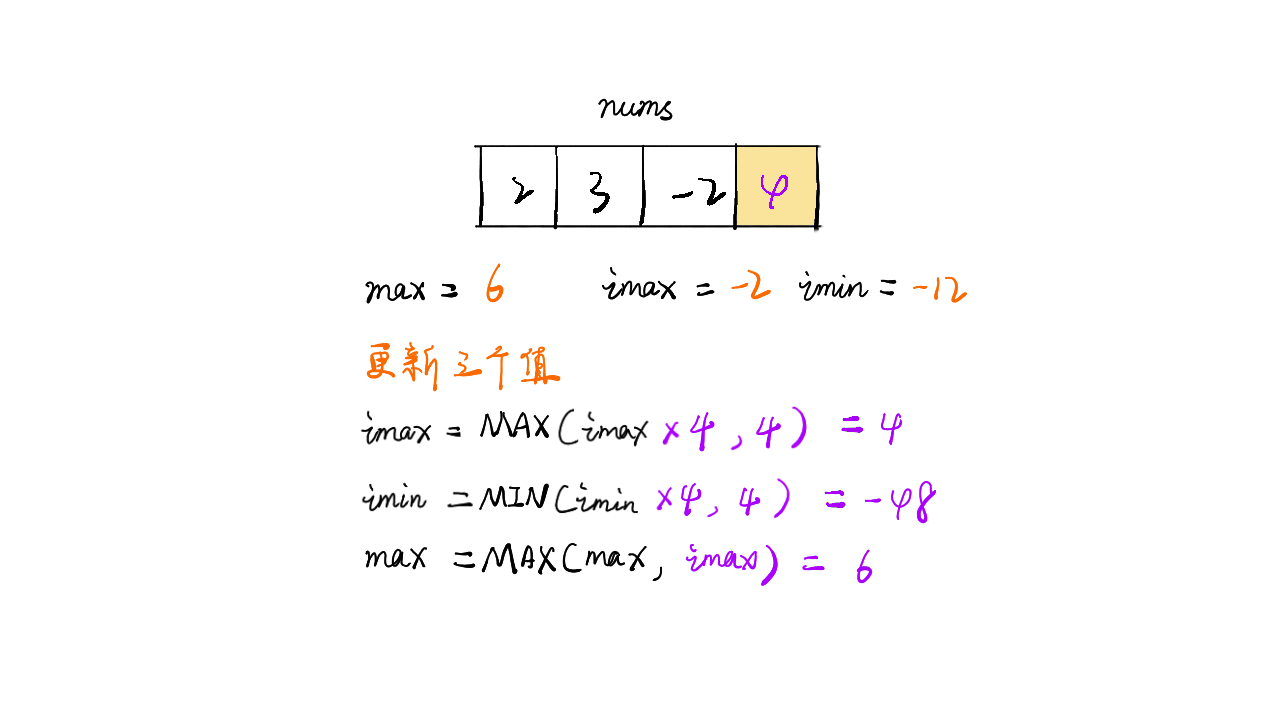 nums
2 3 -2 4
max = 6 imax = -2 imin = -12
更新三个值
imax = MAX(imax ×4, 4) = 4
imin = MIN(imin ×4, 4) = -48
max = MAX(max, imax) = 6